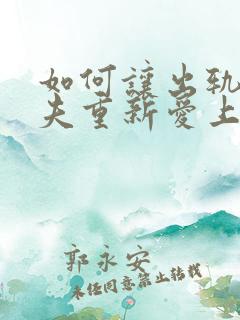 如何讓出軌
夫重新愛上
郭永安
未經同意禁止轉載